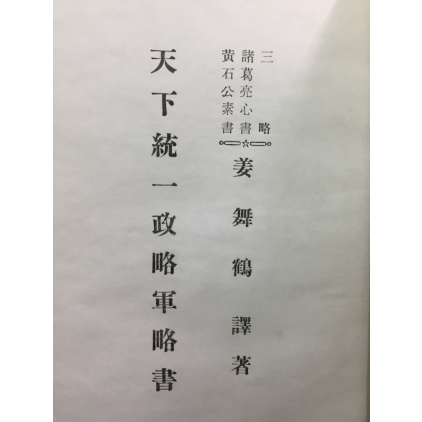 三略
諸葛亮心書
黃石公素書
姜舞鶴譯著
天下統一政略軍略書